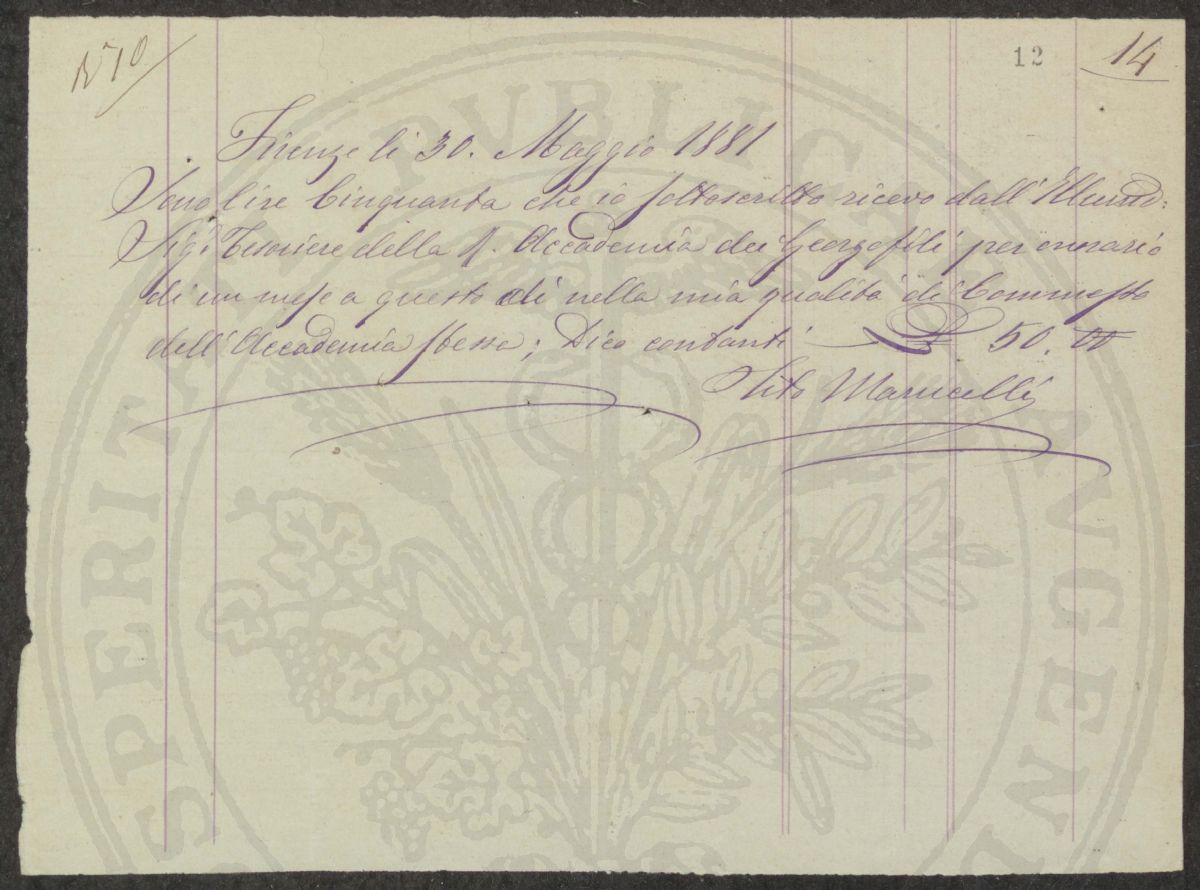 N° 10
12
14
Firenze li 30. Maggio 1881
Sono lire Cinquanta che io sottoscritto ricevo dall'Illumo:
Sigr. Tesoriere della R. Accademia dei Georgofili per onorario
di un mese a questo dì nella mia qualità di Commesso
dell'Accademia stessa; Dico contanti £ 50.
Tito Marucelli
PROSPERITATI PUBLICAE AUGENDAE